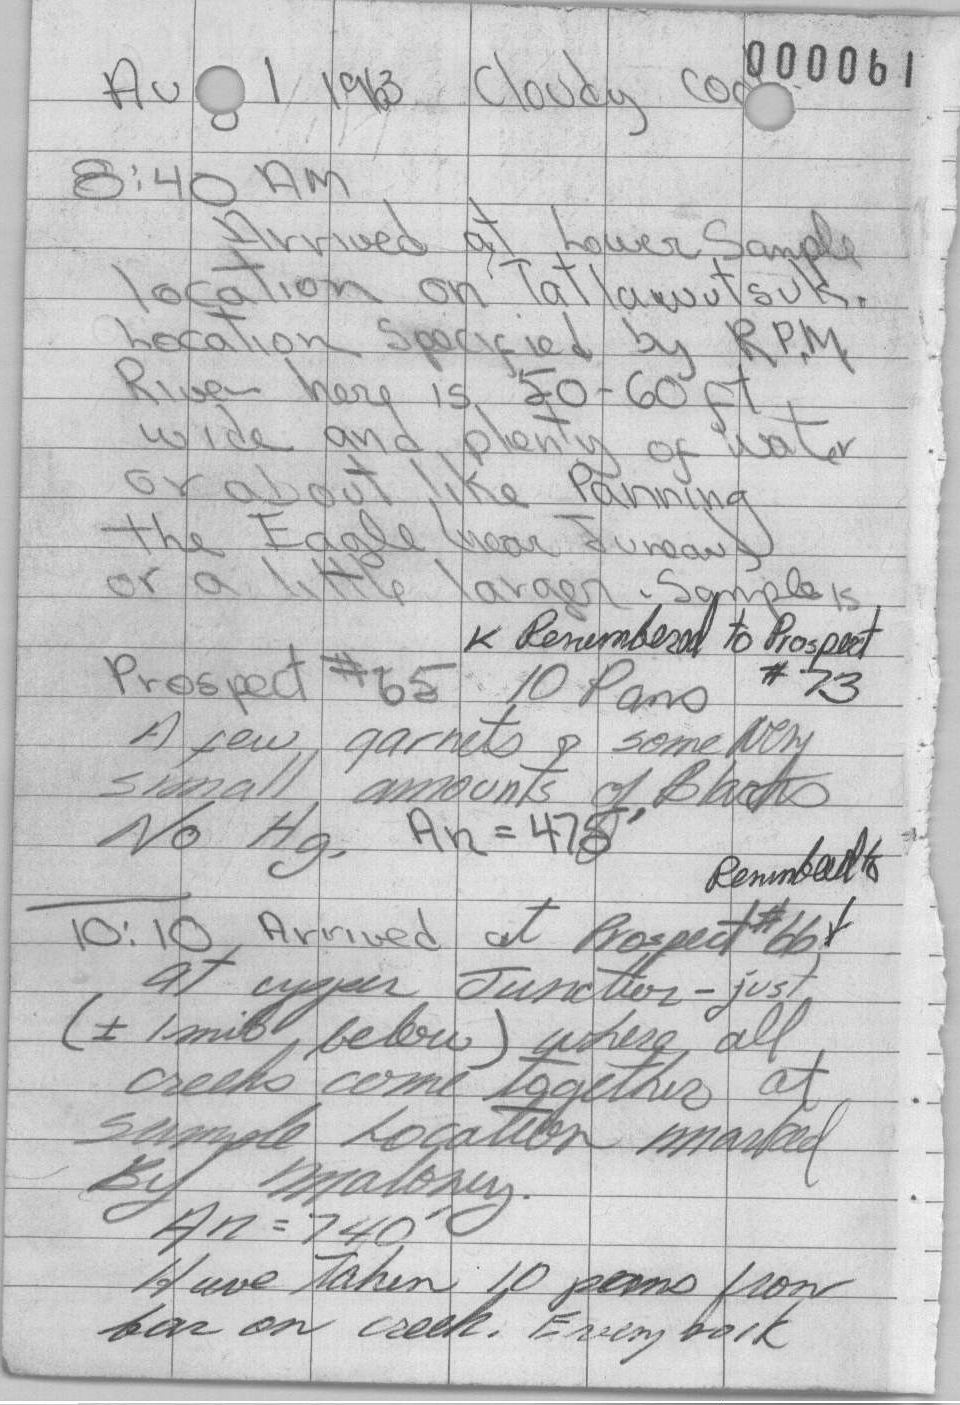 000061
Au 1 1963 Cloudy Coo
8:40 AM
Arrived at Lower Sample
location on Tatlawutsuk.
Location Specified by R.P.M
River here is 50-60 ft
wide and plenty of water
or about like Panning
the Eagle near Juneau
or a little larger. Sample is
< Renumbered to Prospect
Prospect #65 10 Pans # 73
A few garnets & some very
small amounts of Blacks
No Hg. An = 478'
Renumbered to
10:10 Arrived at Prospect #66 ↓
at upper Junction - just
(± 1 mile below) where all
creeks come together at
sample Location marked
By Maloney.
An = 740'
Have taken 10 pans from
bar on creek. Every back